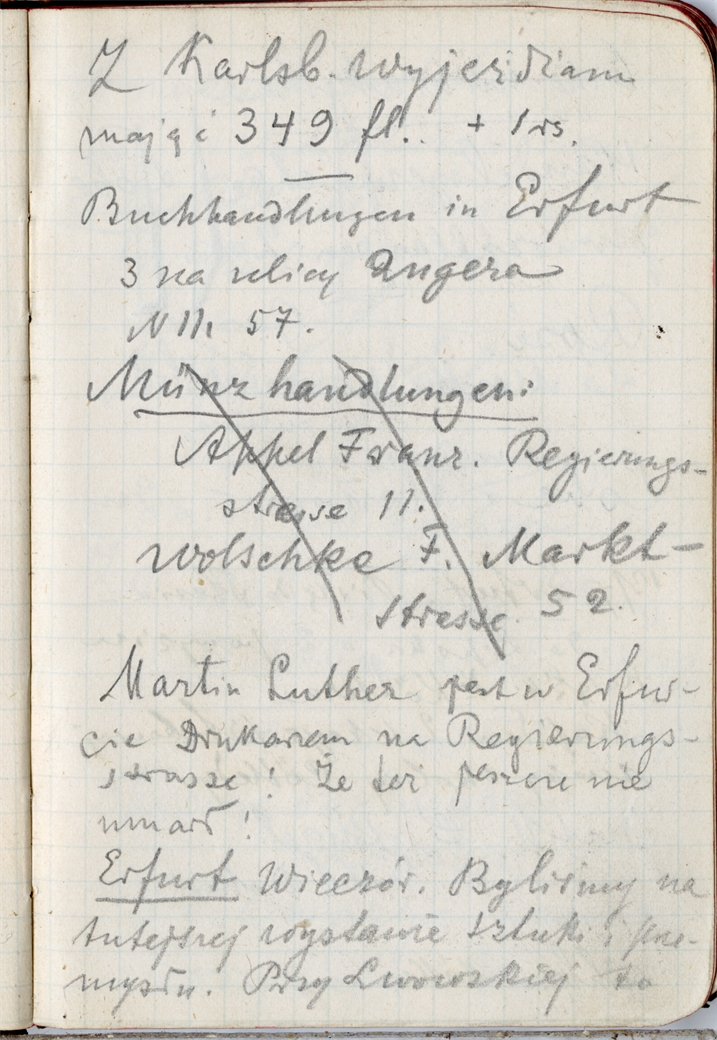 Z Karlsb. wyjeżdżam
mając 349 fl. + 1 rs.
Buchhandlungen in Erfurt
3 na ulicy Angera
N 11, 57.
Münzhandlungen:
Appel Franz. Regierungs-
strasse 11.
Wolschke F. Markt-
strasse 52.
Martin Luther jest w Erfur-
cie Drukarzem na Regierungs-
strasse! Że też jeszcze nie
umarł!
Erfurt Wieczór. Byliśmy na
tutejszej wystawie sztuki i prze-
mysłu. Przy Lwowskiej to